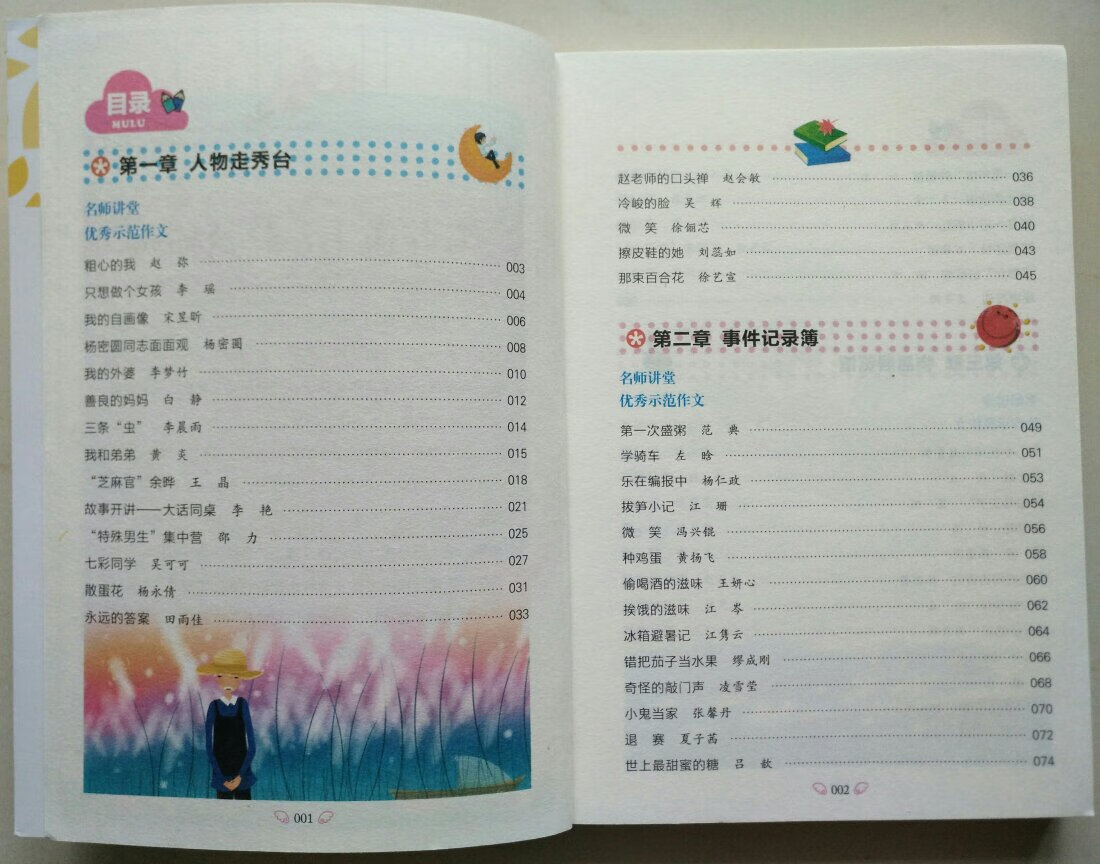 目录
MULU
第一章 人物走秀台
名师讲堂
优秀示范作文
粗心的我 赵 弥 003
只想做个女孩 李 瑶 004
我的自画像 宋昱昕 006
杨密圆同志面面观 杨密圆 008
我的外婆 李梦竹 010
善良的妈妈 白 静 012
三条“虫” 李晨雨 014
我和弟弟 黄 炎 015
“芝麻官”余晔 王 晶 018
故事开讲——大话同桌 李 艳 021
“特殊男生”集中营 邵 力 025
七彩同学 吴可可 027
散蛋花 杨永倩 031
永远的答案 田雨佳 033
001
赵老师的口头禅 赵会敏 036
冷峻的脸 吴 辉 038
微 笑 徐俪芯 040
擦皮鞋的她 刘蕊如 043
那束百合花 徐艺宣 045
第二章 事件记录簿
名师讲堂
优秀示范作文
第一次盛粥 范 典 049
学骑车 左 晗 051
乐在编报中 杨仁政 053
拔笋小记 江 珊 054
微 笑 冯兴锟 056
种鸡蛋 黄扬飞 058
偷喝酒的滋味 王妍心 060
挨饿的滋味 江 岑 062
冰箱避暑记 江隽云 064
错把茄子当水果 缪成刚 066
奇怪的敲门声 凌雪莹 068
小鬼当家 张馨丹 070
退 赛 夏子茜 072
世上最甜蜜的糖 吕 歆 074
002